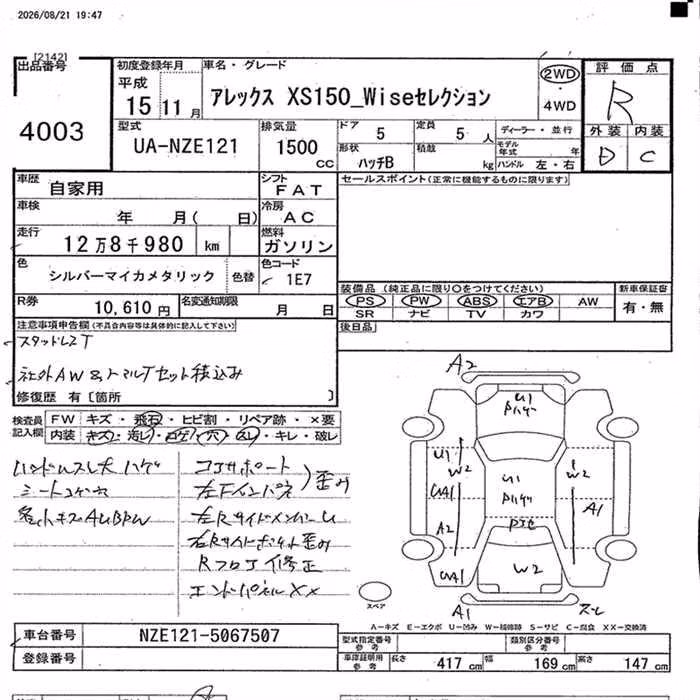 2026/08/21 19:47
[2142]
出品番号
4003
初度登録年月
平成
15年11月
車名・グレード
アレックス XS150_Wiseセレクション
2WD
4WD
評価点
R
外装 内装
D C
型式
UA-NZE121
排気量
1500 cc
ドア 5
定員 5 人
形状 ハッチB
積載 kg
ディーラー・並行
モデル年式 年
ハンドル 左・右
車歴 自家用
シフト FAT
セールスポイント(正常に機能するものに限ります)
車検 年 月( 日)
冷房 AC
走行 12万8千980 km
燃料 ガソリン
色 シルバーマイカメタリック 色替
色コード 1E7
装備品 (純正品に限り○をつけてください)
新車保証書
PS PW ABS エアB AW
SR ナビ TV カワ
有・無
R券 10,610円
名変通知期限 月 日
後日品
注意事項申告欄(不具合内容等は具体的に記入して下さい)
スタッドレスT
社外AW&ノーマルTセット積込み
修復歴 有[箇所 ]
検査員記入欄
FW キズ・飛石・ヒビ割・リペア跡・×要
内装 キズ・汚レ・コゲ・穴・凹レ・キレ・破レ
ハンドルスレ大ハゲ
各小キズAUBPW
コアサポート
左Fインパネ
歪み
左Rサイドメンバー U
Rフロア修正
エンドパネルXX
A2
U1
Pハゲ
U1
W2
UA1
A2
UA1
U1
Pハゲ
W2
A1
W2
A1
スペア
A-キズ E-エクボ U-凹み W-補修跡 S-サビ C-腐食 XX-交換済
車台番号 NZE121-5067507
登録番号
型式指定番号 参考
類別区分番号 参考
車庫証明用 参考
長さ 417cm 幅 169cm 高さ 147cm